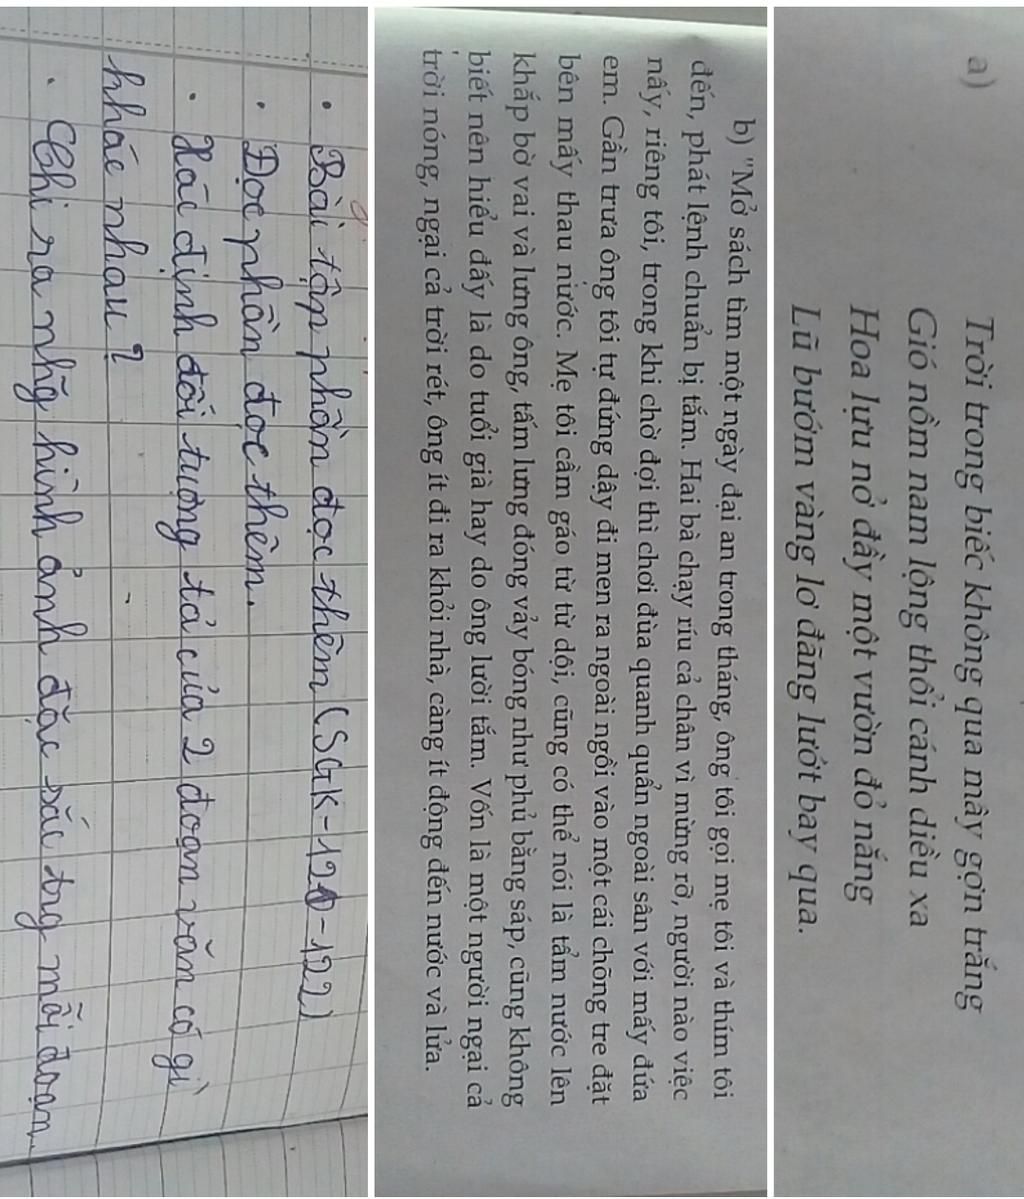 a)
Trời trong biếc không qua mây gợn trắng
Gió nồm nam lộng thổi cánh diều xa
Hoa lựu nở đầy một vườn đỏ nắng
Lũ bướm vàng lơ đãng lướt bay qua.
b) "Mở sách tìm một ngày đại an trong tháng, ông tôi gọi mẹ tôi và thím tôi
đến, phát lệnh chuẩn bị tắm. Hai bà chạy ríu cả chân vì mừng rỡ, người nào việc
nấy, riêng tôi, trong khi chờ đợi thì chơi đùa quanh quẩn ngoài sân với mấy đứa
em. Gần trưa ông tôi tự đứng dậy đi men ra ngoài ngồi vào một cái chõng tre đặt
bên mấy thau nước. Mẹ tôi cầm gáo từ từ dội, cũng có thể nói là tẩm nước lên
khắp bờ vai và lưng ông, tấm lưng đóng vảy bóng như phủ bằng sáp, cũng không
biết nên hiểu đấy là do tuổi già hay do ông lười tắm. Vốn là một người ngại cả
trời nóng, ngại cả trời rét, ông ít đi ra khỏi nhà, càng ít động đến nước và lửa.
. Bài tập phần đọc thêm (SGK-120-122)
. Đọc phần đọc thêm.
. Xác định đối tượng tả của 2 đoạn văn có gì
khác nhau?
. Chỉ ra nhg̃ hình ảnh đặc sắc tng mỗi đoạn.